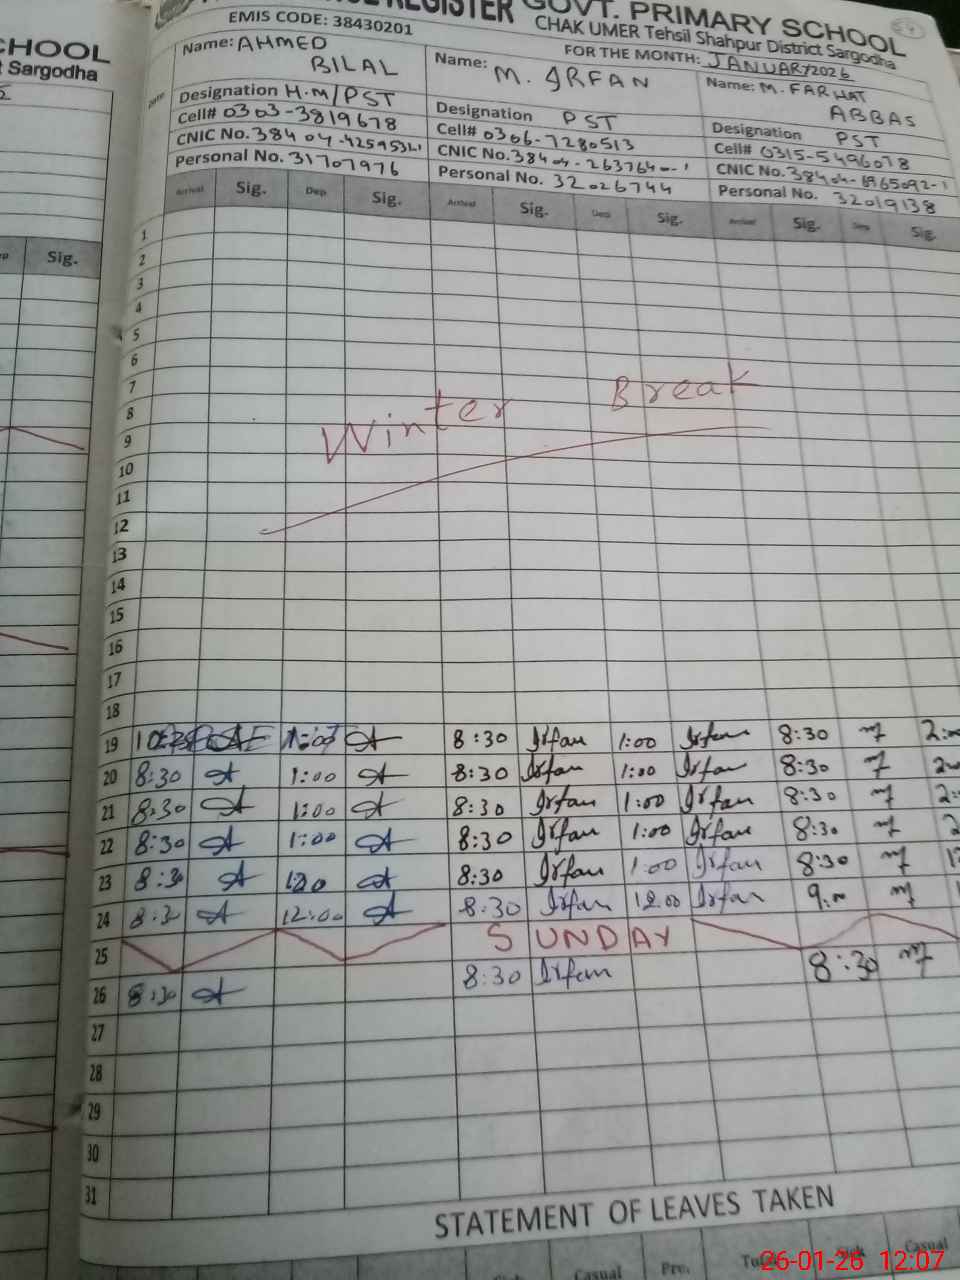 CHOOL
Sargodha
Sig.
REGISTER GOVT. PRIMARY SCHOOL
EMIS CODE: 38430201
CHAK UMER Tehsil Shahpur District Sargodha
FOR THE MONTH: JANUARY 2026
Name: AHMED BILAL
Designation H.M/PST
Cell# 0303-3819678
Personal No. 31707976
Name: M. IRFAN
Designation PST
Cell# 0306-7280513
Personal No. 32026744
Name: M. FARHAT ABBAS
Designation PST
Cell# 0315-5496078
Personal No. 32019138
Arrival Sig. Dep. Sig. Arrival Sig. Dep. Sig. Arrival Sig. Dep. Sig.
1
2
3
4
5
6
7
8
9
10
11
12
13
14
15
16
17
18
Winter Break
19 8:30 Irfan 1:00 Irfan 8:30
20 8:30 1:00 8:30 Irfan 1:00 Irfan 8:30
21 8:30 1:00 8:30 Irfan 1:00 Irfan 8:30
22 8:30 1:00 8:30 Irfan 1:00 Irfan 8:30
23 8:30 8:30 Irfan 1:00 Irfan 8:30
24 12:00 8:30 Irfan 12:00 Irfan
25 SUNDAY
26 8:30 8:30 Irfan 8:30
27
28
29
30
31
STATEMENT OF LEAVES TAKEN
Casual Pre. Sick Casual
26-01-26 12:07